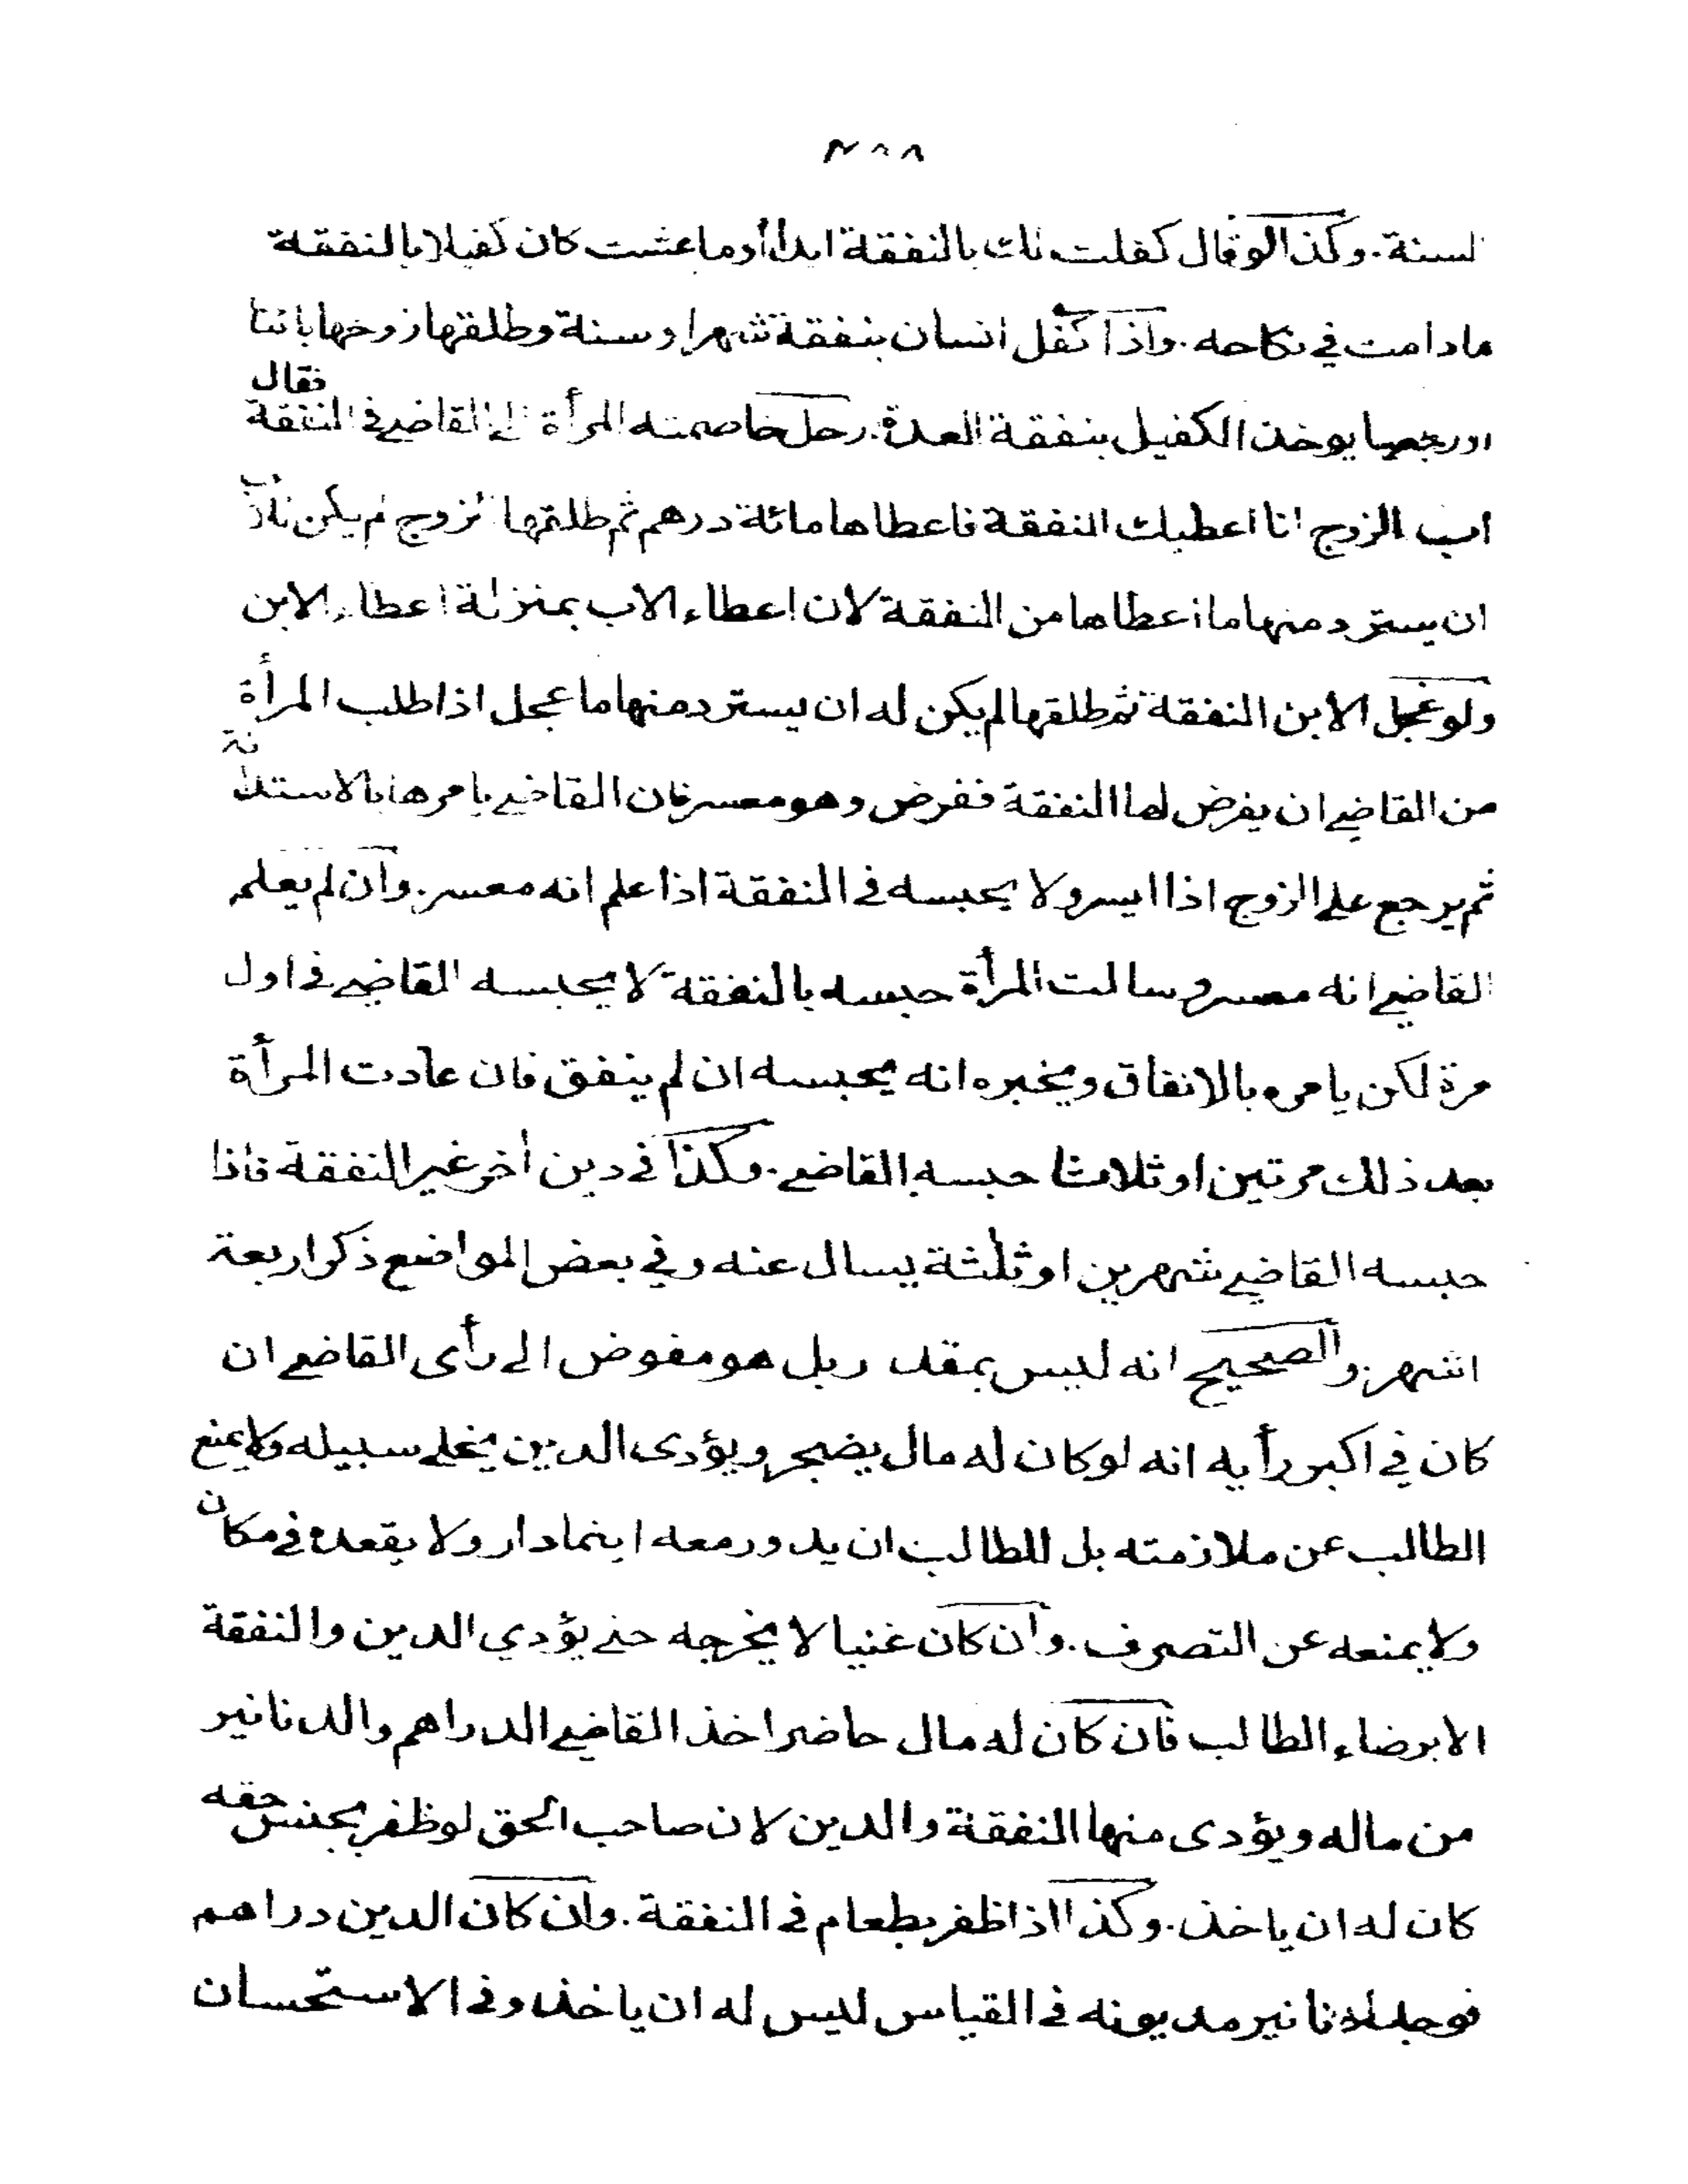 ٢٨٨
لسنة. وكذا لو قال كفلت لك بالنفقة ابدا أو ما عشت كان كفيلا بالنفقة
ما دامت في نكاحه. واذا كفل انسان بنفقة شهر او سنة وطلقها زوجها بائنا
او رجعيا يوخذ الكفيل بنفقة العدة. رجل خاصمته المرأة الى القاضي في النفقة فقال
اب الزوج انا اعطيك النفقة فاعطاها مائة درهم ثم طلقها الزوج لم يكن للاب
ان يسترد منها ما اعطاها من النفقة لان اعطاء الاب بمنزلة اعطاء الابن
ولو عجل الابن النفقة ثم طلقها لم يكن له ان يسترد منها ما عجل اذا طلب المرأة
من القاضي ان يفرض لها النفقة ففرض وهو معسر فان القاضي يامرها بالاستدانة
ثم يرجع على الزوج اذا ايسر ولا يحبسه في النفقة اذا علم انه معسر. وان لم يعلم
القاضي انه معسر وسالت المرأة حبسه بالنفقة لا يحبسه القاضي في اول
مرة لكن يامره بالانفاق ويخبره انه يحبسه ان لم ينفق فان عادت المرأة
بعد ذلك مرتين او ثلاثا حبسه القاضي. وكذا في دين اخر غير النفقة فاذا
حبسه القاضي شهرين او ثلثة يسال عنه وفي بعض المواضع ذكر اربعة
اشهر. والصحيح انه ليس بمقدر بل هو مفوض الى رأى القاضي ان
كان في اكبر رأيه انه لو كان له مال يضجر ويؤدى الدين يخلي سبيله ولا يمنع
الطالب عن ملازمته بل للطالب ان يدور معه اينما دار ولا يقعده في مكان
ولا يمنعه عن التصرف. وان كان غنيا لا يخرجه حتى يؤدي الدين والنفقة
الا برضاء الطالب فان كان له مال حاضر اخذ القاضي الدراهم والدنانير
من ماله ويؤدى منها النفقة والدين لان صاحب الحق لو ظفر بجنس حقه
كان له ان ياخذ. وكذا اذا ظفر بطعام في النفقة. وان كان الدين دراهم
فوجد لدنانير مديونه في القياس ليس له ان ياخذ وفي الاستحسان